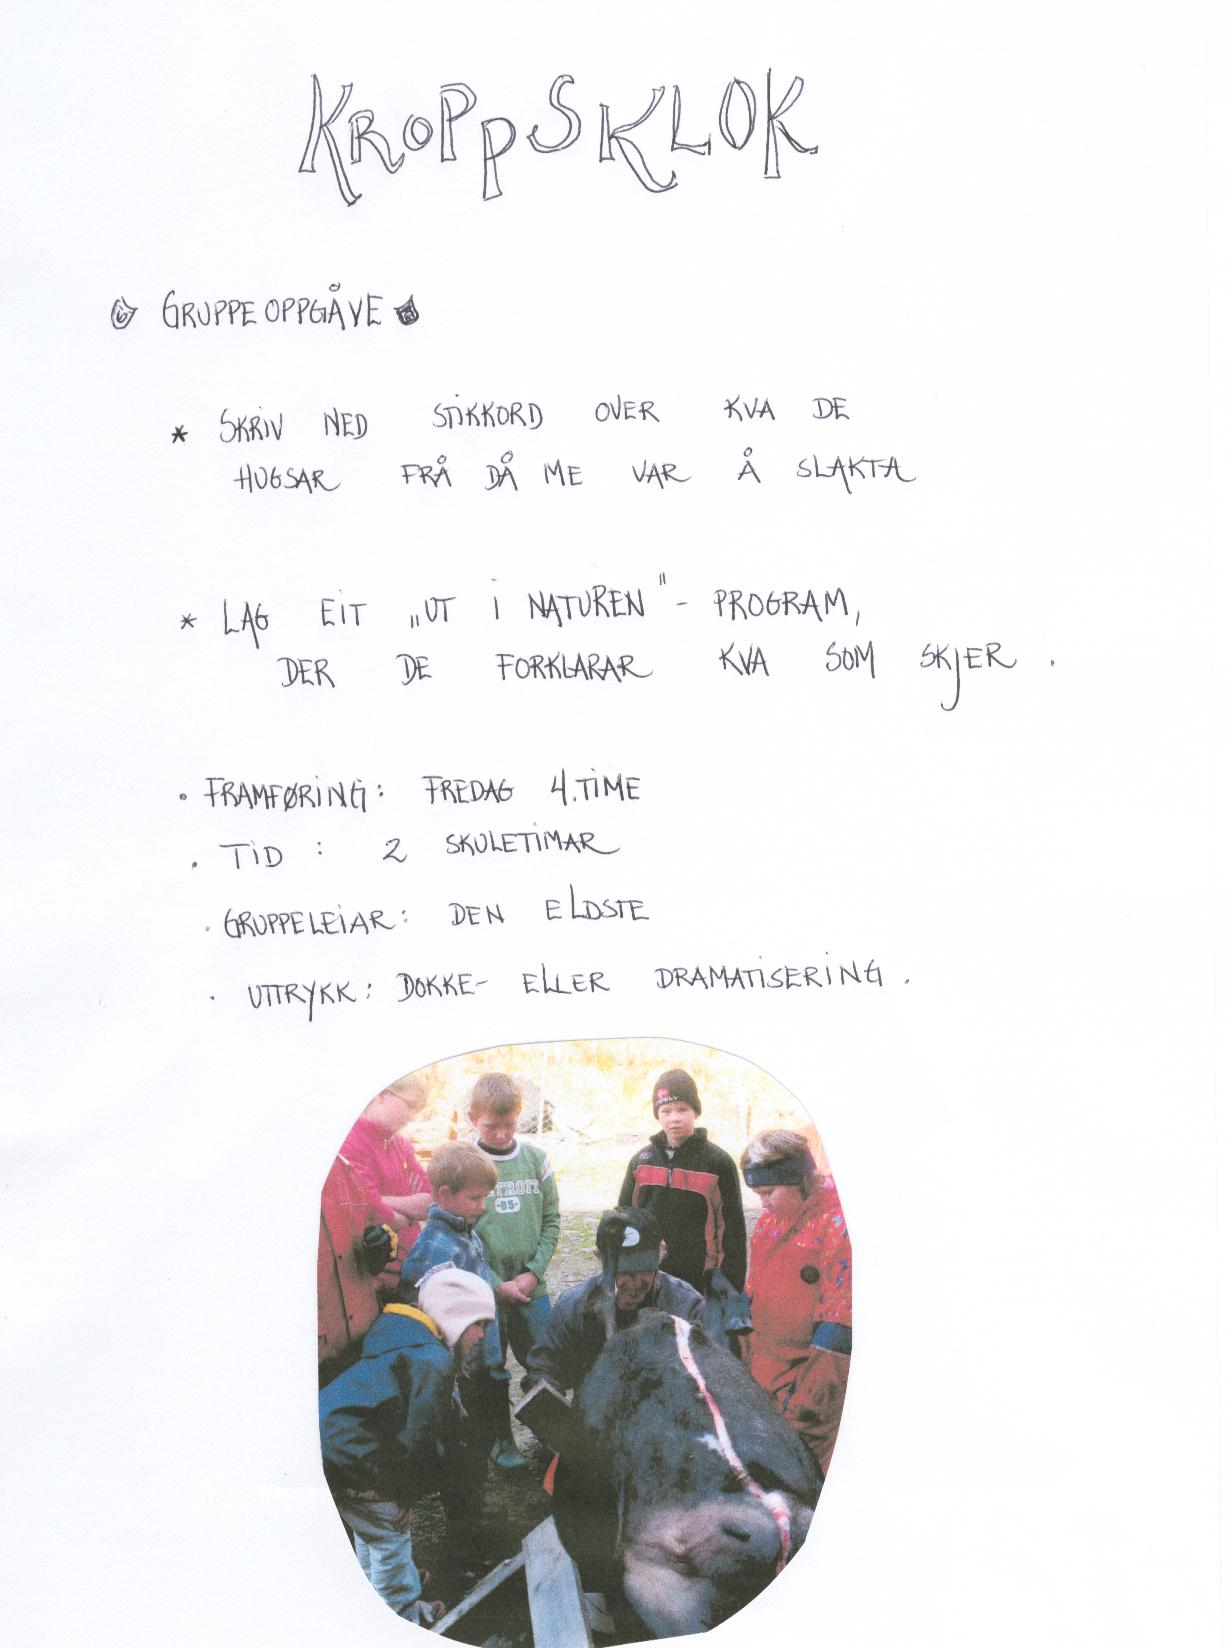 KROPPSKLOK
GRUPPEOPPGÅVE
* SKRIV NED STIKKORD OVER KVA DE
HUGSAR FRÅ DÅ ME VAR Å SLAKTA
* LAG EIT „UT I NATUREN" - PROGRAM,
DER DE FORKLARAR KVA SOM SKJER.
• FRAMFØRING: FREDAG 4.TIME
• TID : 2 SKULETIMAR
• GRUPPELEIAR: DEN ELDSTE
• UTTRYKK: DOKKE- ELLER DRAMATISERING.